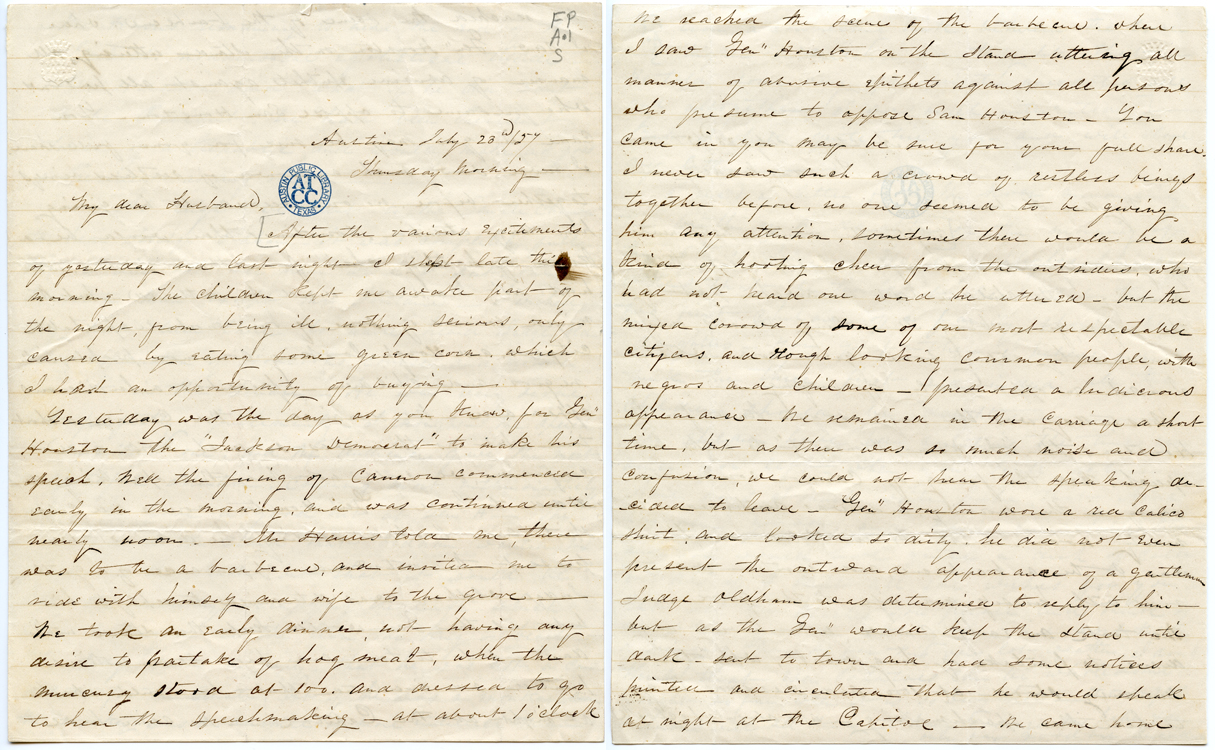 F.P.
A.1
S
Austin July 23d/57 —
Thursday Morning —
AUSTIN PUBLIC LIBRARY
AT
CC
TEXAS
My dear Husband,
[After the various excitements
of yesterday and last night I slept late this
morning – The children kept me awake part of
the night, from being ill, nothing serious, only
caused by eating some green corn. which
I had an opportunity of buying —.
Yesterday was the day as you know, for Genl
Houston the "Jackson Democrat" to make his
speech. Well the firing of Cannon commenced
early in the morning, and was continued until
nearly noon. — Mr Harris told me, there
was to be a barbecue, and invited me to
ride with himself and wife to the grove —
We took an early dinner, not having any
desire to partake of hog meat, when the
mercury stood at 100. and dressed to go
to hear the speechmaking – at about 1 o'clock
We reached the scene of the barbecue. where
I saw Genl Houston on the Stand uttering all
manner of abusive epithets against all persons
who presume to oppose Sam Houston – You
came in you may be sure for your full share.
I never saw such a crowd of restless beings
together before, no one seemed to be giving
him any attention, sometimes there would be a
kind of hooting cheer from the outsiders, who
had not heard one word he uttered – but the
mixed corowd of some of our most respectable
citizens, and rough looking common people, with
negros and children – presented a ludicrous
appearance – We remained in the carriage a short
time, but as there was so much noise and
confusion, we could not hear the speaking, de-
cided to leave – Genl Houston wore a red calico
shirt, and looked so dirty. he did not even
present the outward appearance of a gentleman
Judge Oldham was determined to reply to him –
but as the Genl would keep the stand until
dark – sent to town and had some notices
printed and circulated that he would speak
at night at the Capitol — We came home